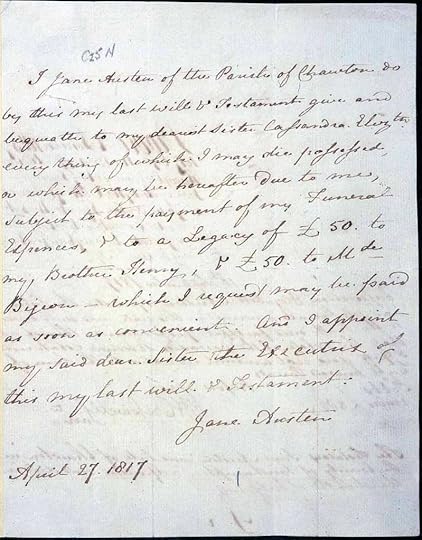 I Jane Austen of the Parish of Chawton do
by this my last will & Testament give and
bequeathe to my dearest Sister Cassandra Elizth
every thing of which I may die possessed,
or which may be hereafter due to me,
subject to the payment of my Funeral
Expences, & to a Legacy of £50. to
my Brother Henry, & £50. to Mde
Bigeon - which I request may be paid
as soon as convenient. And I appoint
my said dear Sister the Executrix of
this my last will & Testament.
Jane Austen
April 27. 1817